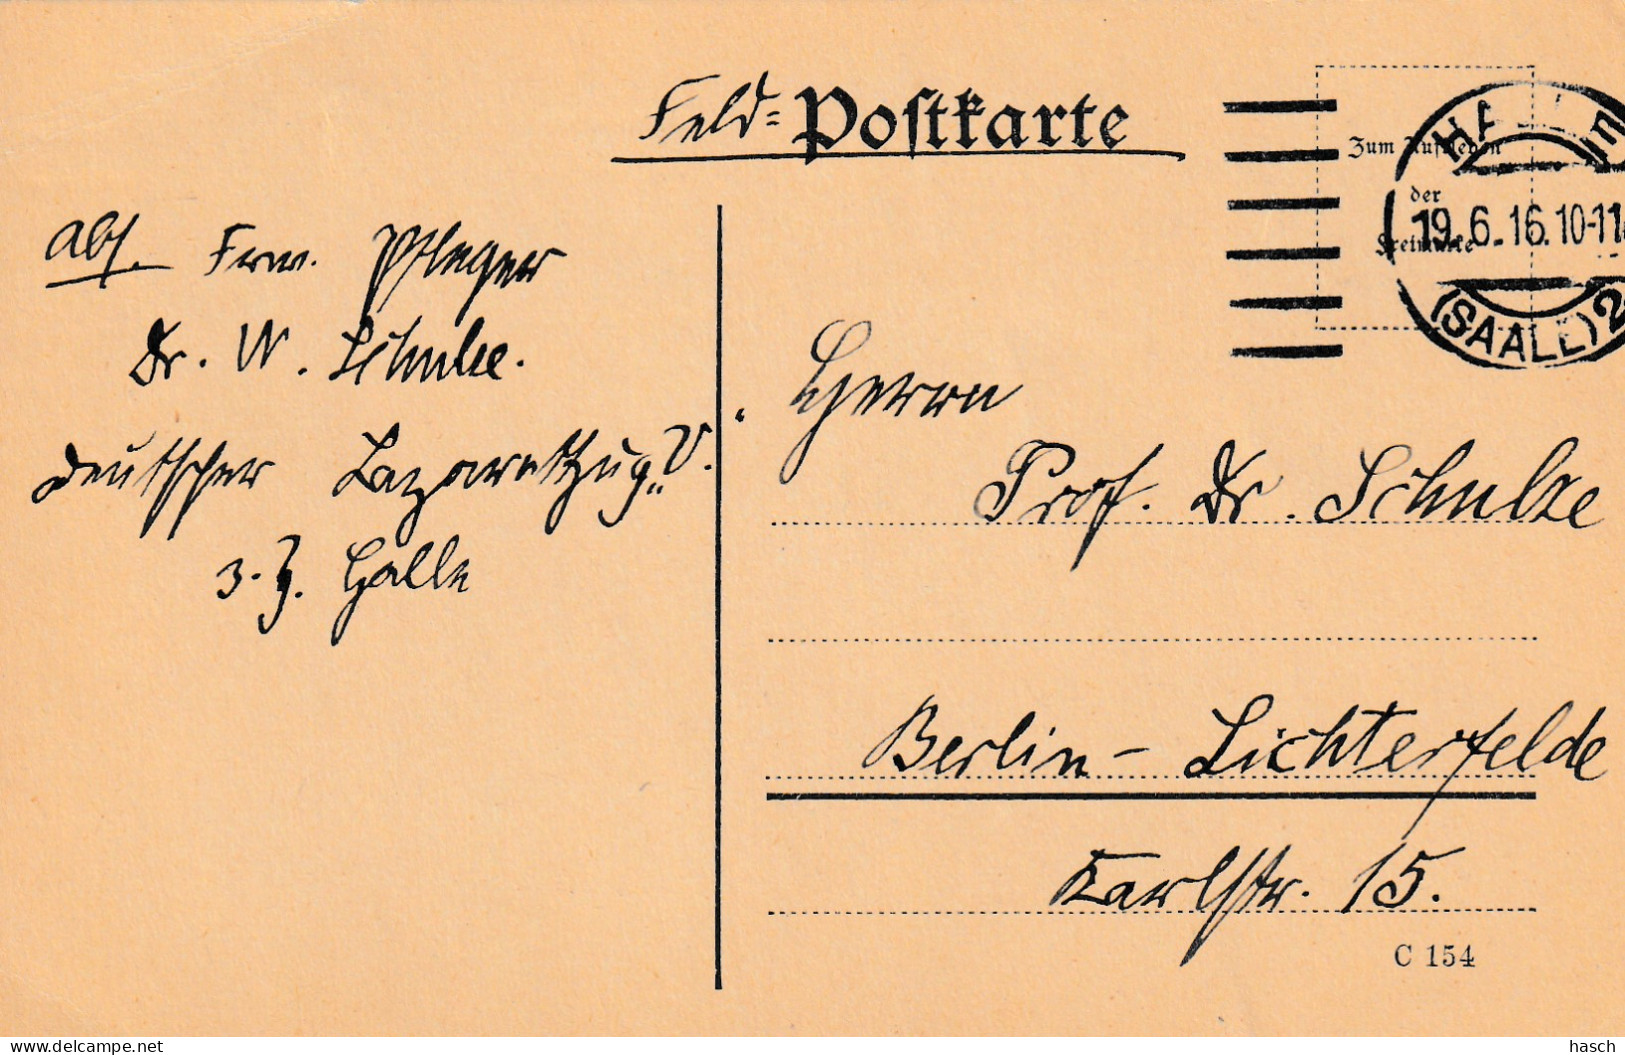 Feld=Postkarte
Zum Aufkleben
der
Freimarke
HALLE
19.6.16.10-11
(SAALE) 2
Abs. Frw. Pfleger
Dr. W. Schulze.
Deutscher Lazarettzug „V.“
z. Z. Halle
Herrn
Prof. Dr. Schulze
Berlin-Lichterfelde
Karlstr. 15.
C 154
www.delcampe.net
hasch